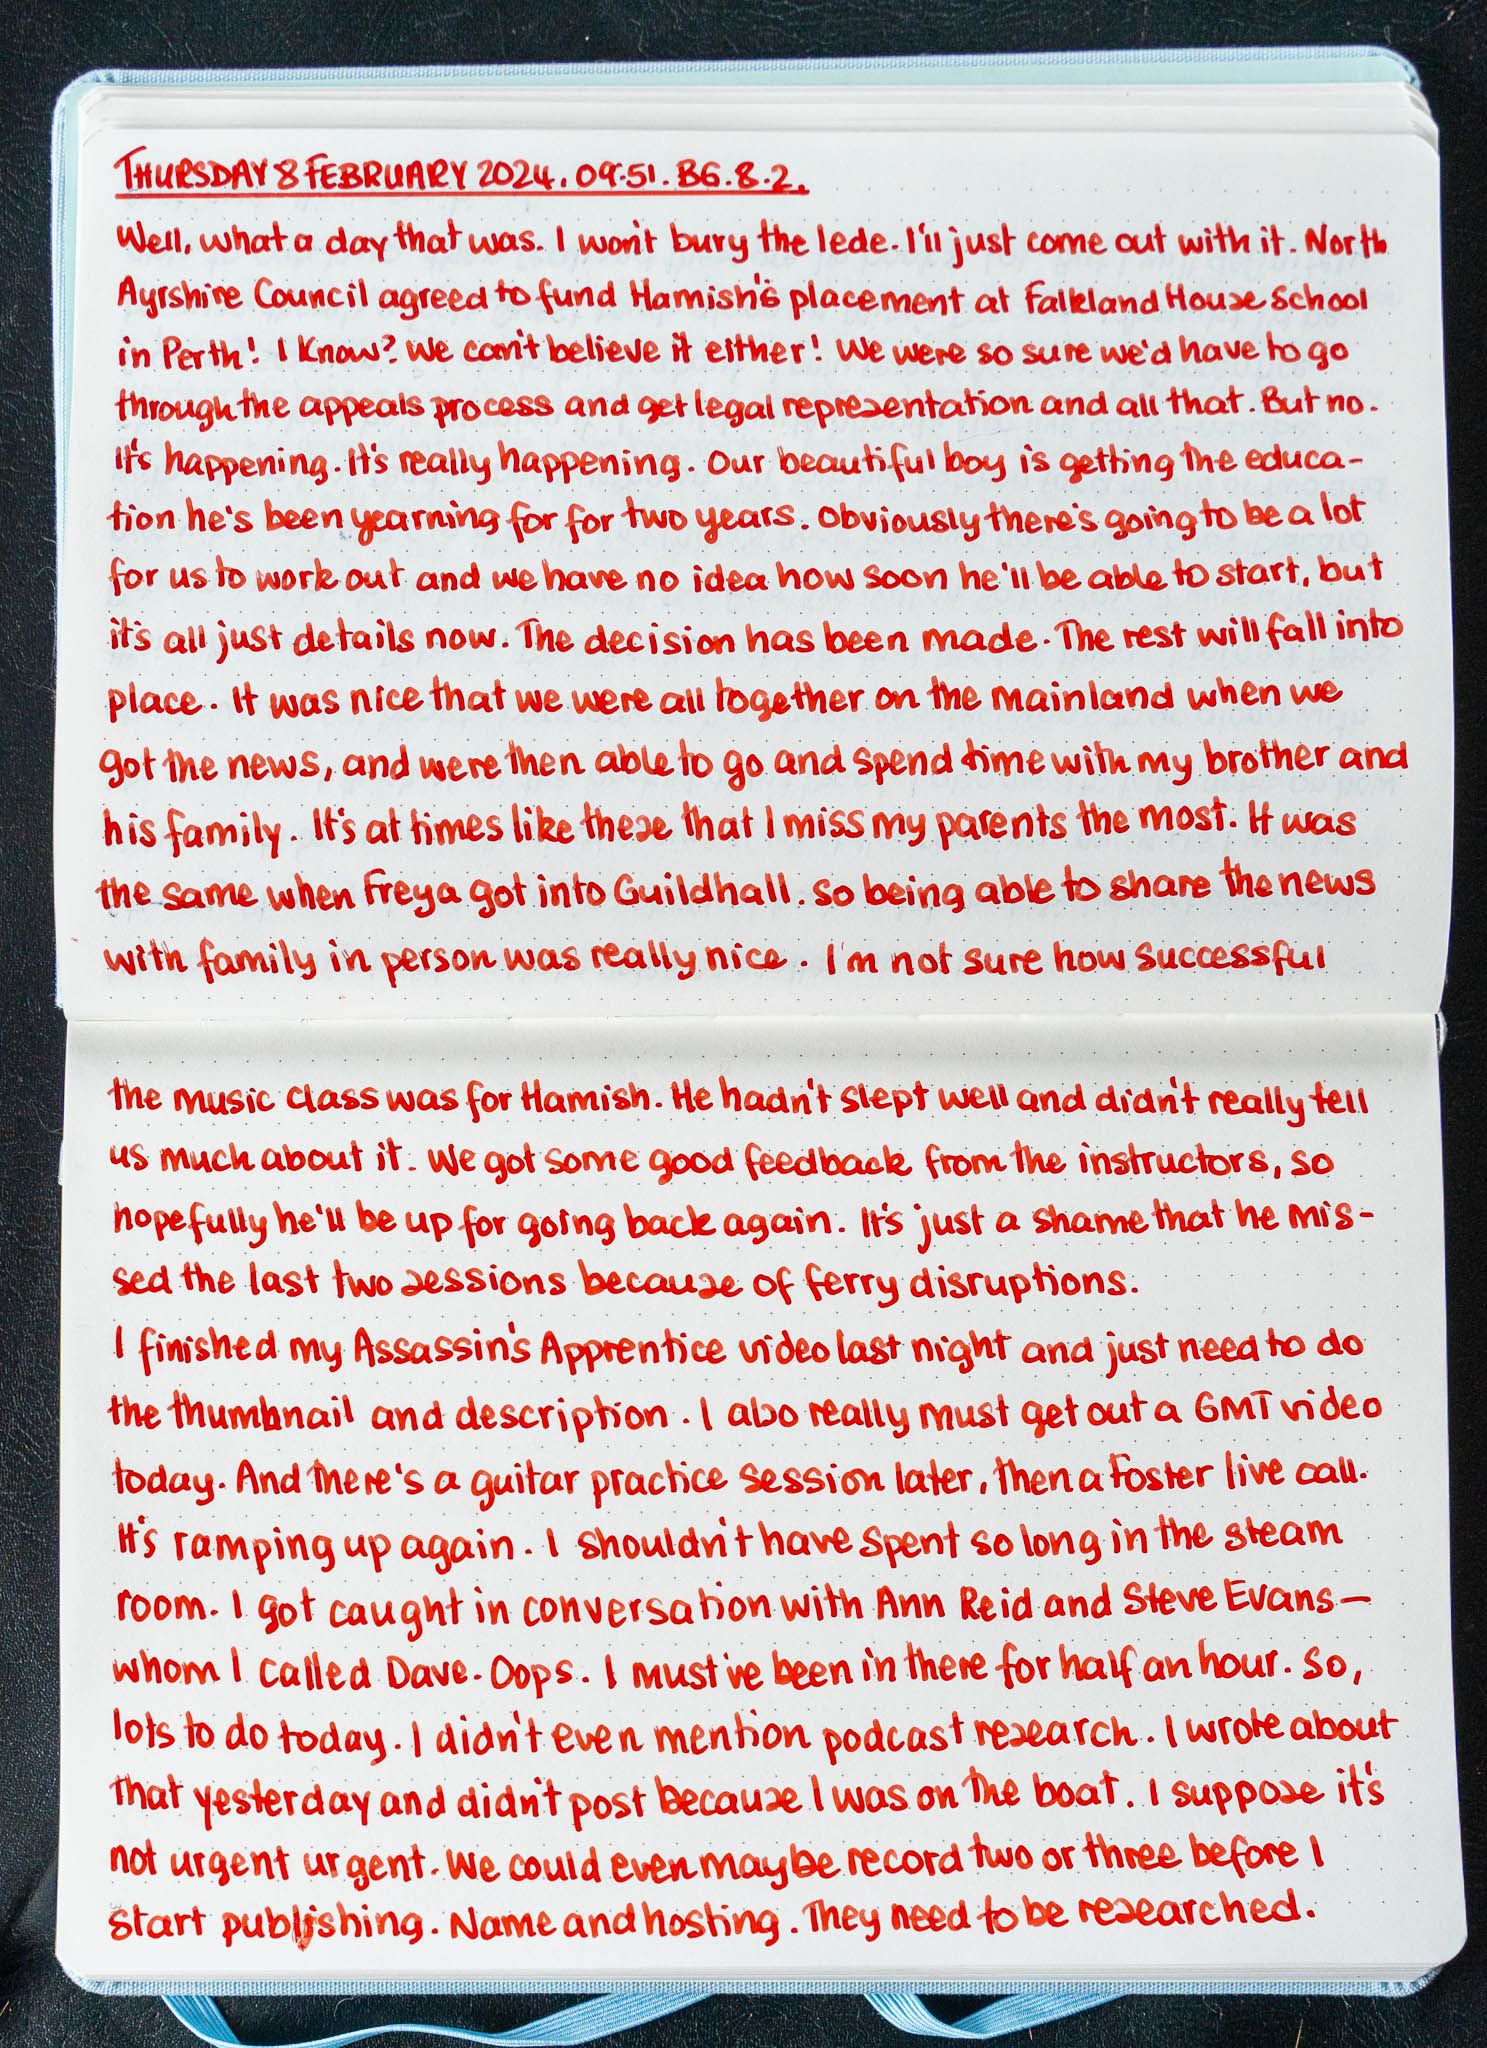 THURSDAY 8 FEBRUARY 2024. 09.51. B6.8.2.
Well, what a day that was. I won't bury the lede. I'll just come out with it. North
Ayrshire Council agreed to fund Hamish's placement at Falkland House School
in Perth! I know? We can't believe it either! We were so sure we'd have to go
through the appeals process and get legal representation and all that. But no.
It's happening. It's really happening. Our beautiful boy is getting the educa-
tion he's been yearning for for two years. Obviously there's going to be a lot
for us to work out and we have no idea how soon he'll be able to start, but
it's all just details now. The decision has been made. The rest will fall into
place. It was nice that we were all together on the mainland when we
got the news, and were then able to go and spend time with my brother and
his family. It's at times like these that I miss my parents the most. It was
the same when Freya got into Guildhall. So being able to share the news
with family in person was really nice. I'm not sure how successful
the music class was for Hamish. He hadn't slept well and didn't really tell
us much about it. We got some good feedback from the instructors, so
hopefully he'll be up for going back again. It's just a shame that he mis-
sed the last two sessions because of ferry disruptions.
I finished my Assassin's Apprentice video last night and just need to do
the thumbnail and description. I also really must get out a GMT video
today. And there's a guitar practice session later, then a Foster live call.
It's ramping up again. I shouldn't have spent so long in the steam
room. I got caught in conversation with Ann Reid and Steve Evans—
whom I called Dave. Oops. I must've been in there for half an hour. So,
lots to do today. I didn't even mention podcast research. I wrote about
that yesterday and didn't post because I was on the boat. I suppose it's
not urgent urgent. We could even maybe record two or three before I
start publishing. Name and hosting. They need to be researched.